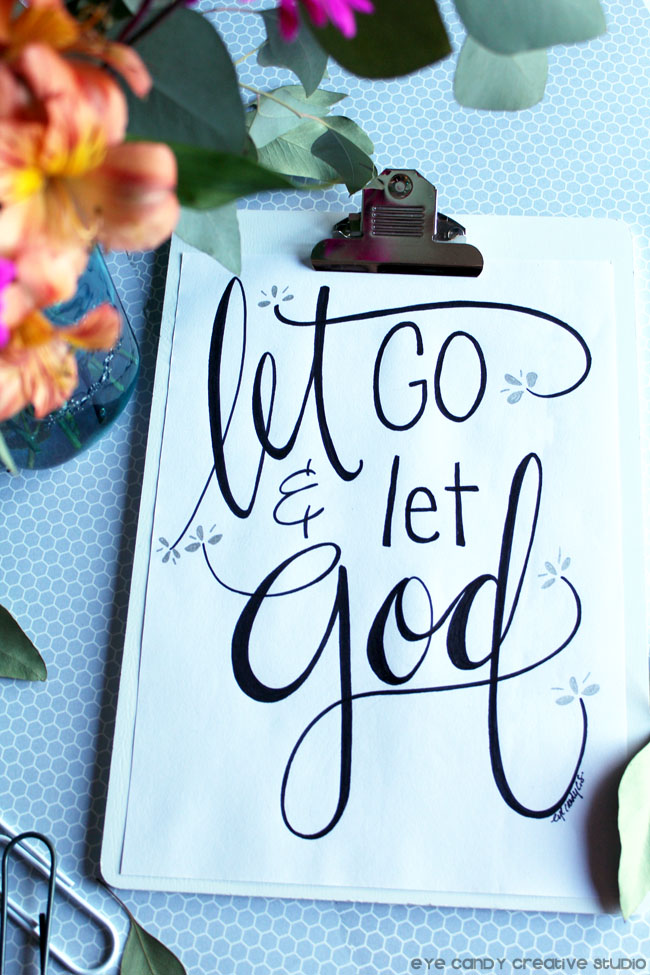 let GO
& let
God
eye candy C.S.
EYE CANDY CREATIVE STUDIO